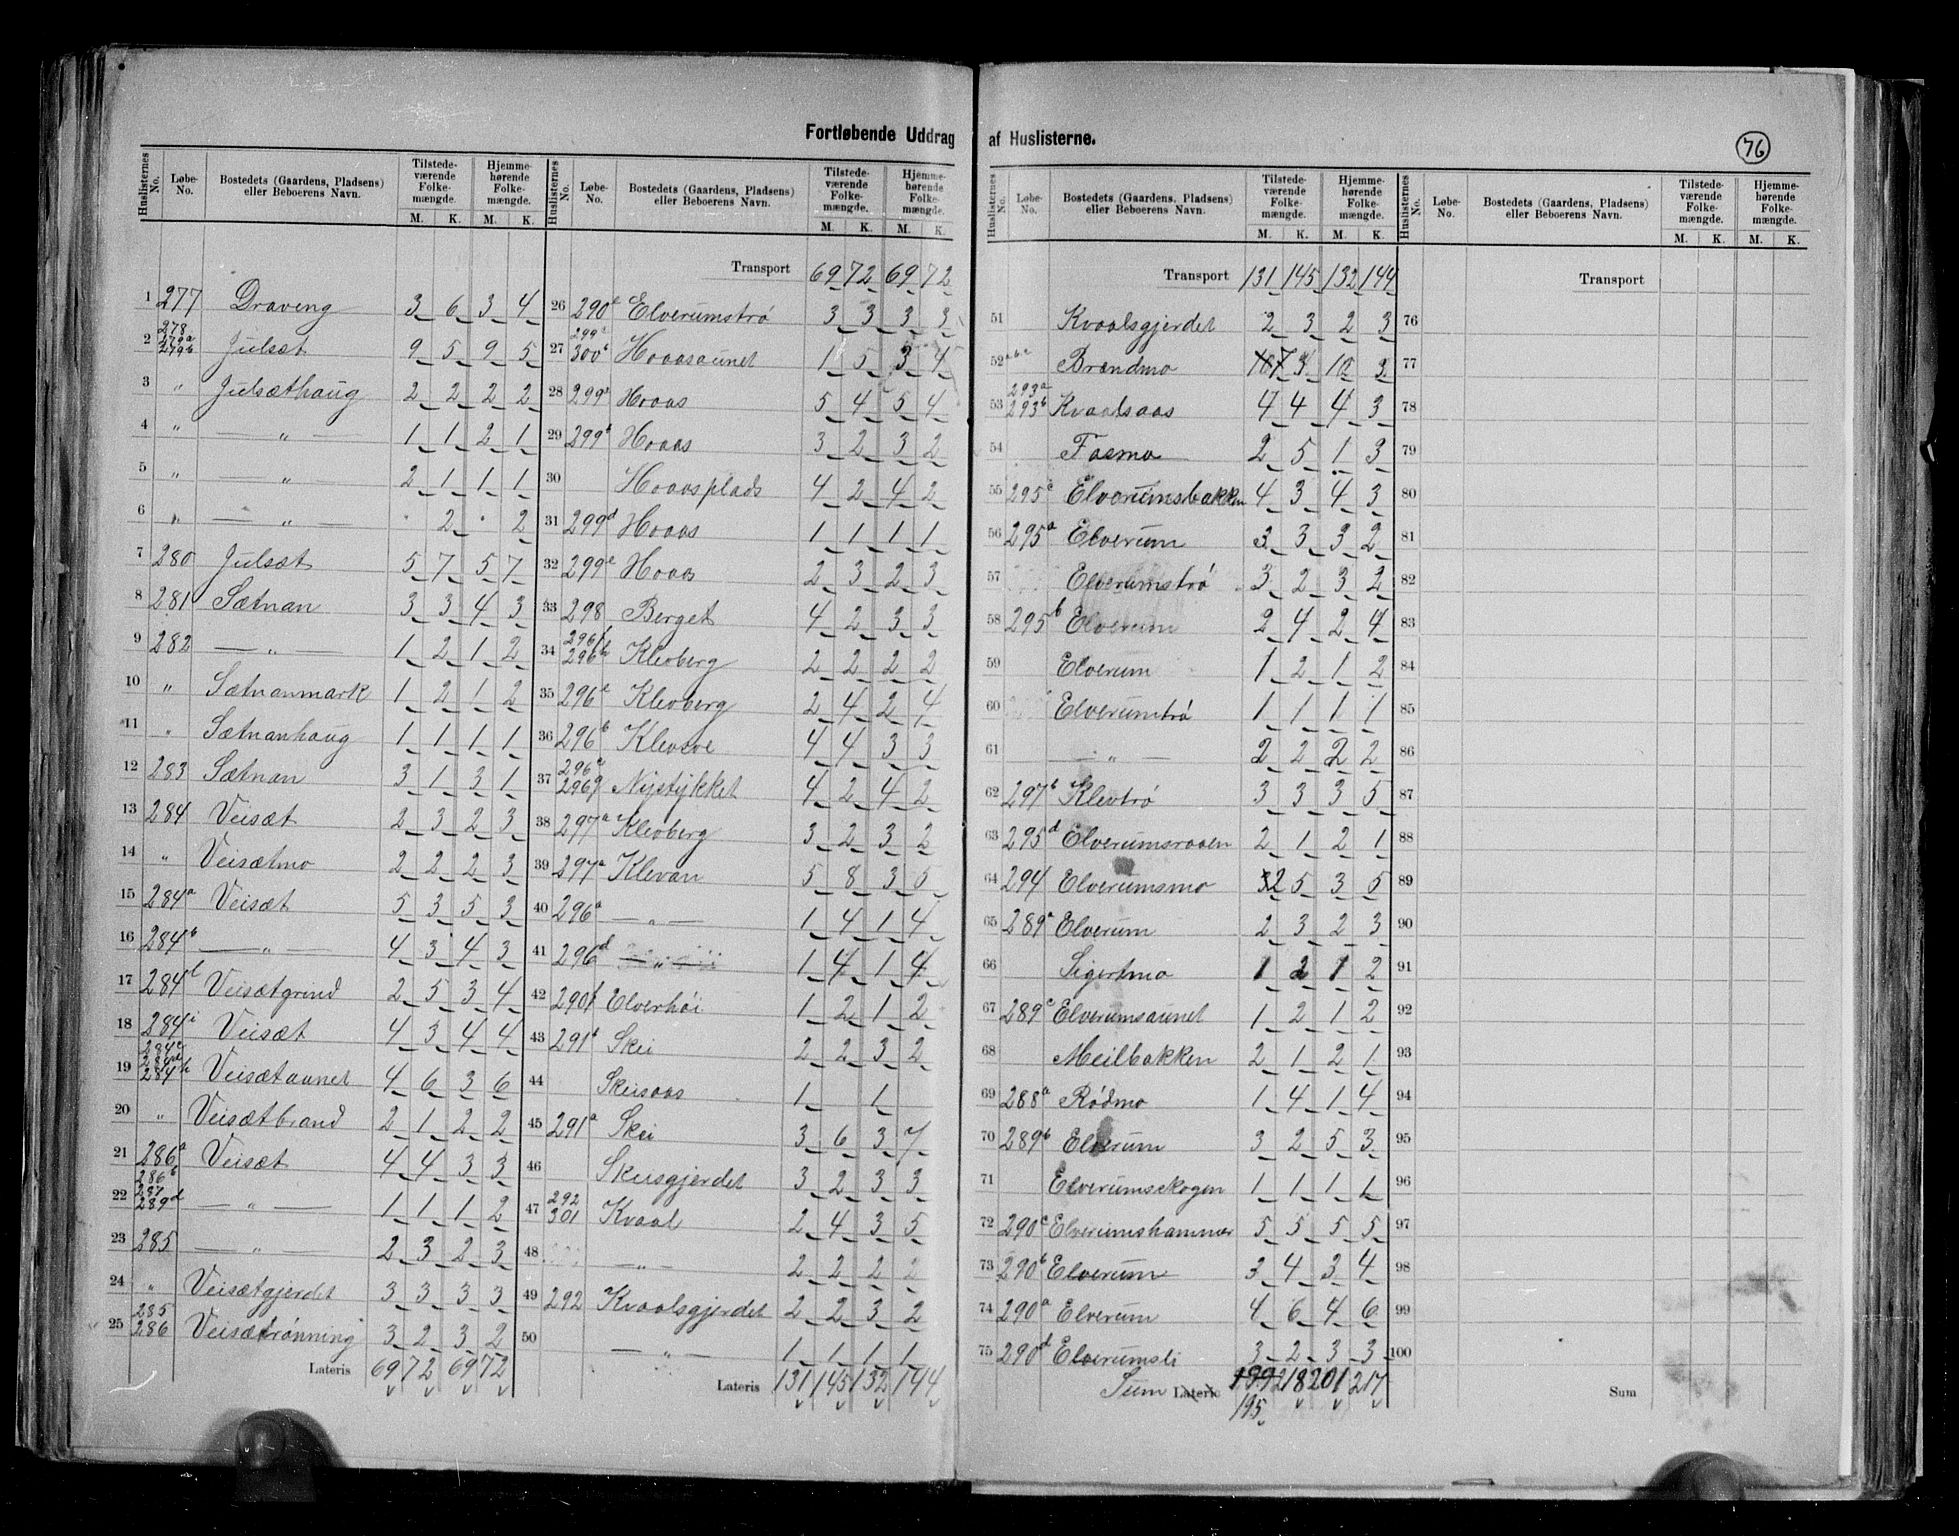 Fortløbende Uddrag af Huslisterne.
76
Huslisternes No. Løbe-No. Bostedets (Gaardens, Pladsens) eller Beboerens Navn. Tilstedeværende Folkemængde. M. K. Hjemmehørende Folkemængde. M. K.
1 277 Draveng 3 6 3 4
2 278 279a 279b Julsæt 9 5 9 5
3 " Julsæthaug 2 2 2 2
4 " — " — 1 1 2 1
5 " — " — 2 1 1 1
6 " — " — · 2 · 2
7 280 Julsæt 5 7 5 7
8 281 Sætnan 3 3 4 3
9 282 — " — 1 2 1 2
10 " Sætnanmark 1 2 1 2
11 " Sætnanhaug 1 1 1 1
12 283 Sætnan 3 1 3 1
13 284 Veisæt 2 3 2 3
14 " Veisætmo 2 2 2 3
15 284a Veisæt 5 3 5 3
16 284b — " — 4 3 4 3
17 284f Veisætgrind 2 5 3 4
18 284i Veisæt 4 3 4 4
19 284c 284d 284h Veisætaunet 4 6 3 6
20 " Veisætbrand 2 1 2 2
21 286a Veisæt 4 4 3 3
22 286b 287 289d — " — 1 1 1 2
23 285 — " — 2 3 2 3
24 " Veisætgjerdet 3 3 3 3
25 285 286 Veisætrønning 3 2 3 2
Lateris 69 72 69 72
Huslisternes No. Løbe-No. Bostedets (Gaardens, Pladsens) eller Beboerens Navn. Tilstedeværende Folkemængde. M. K. Hjemmehørende Folkemængde. M. K.
Transport 69 72 69 72
26 290e Elverumstrø 3 3 3 3
27 299a 300b Hoaasaunet 1 5 3 4
28 299 Hoaas 5 4 5 4
29 299 Hoaas 3 2 3 2
30 Hoaasplads 4 2 4 2
31 299d Hoaas 1 1 1 1
32 299e Hoaas 2 3 2 3
33 298 Berget 4 2 3 3
34 296f 296h Klevberg 2 2 2 2
35 296e Klevberg 2 4 2 4
36 296b Klevine 4 4 3 3
37 296c 296g Nystykket 4 2 4 2
38 297a Klevberg 3 2 3 2
39 297a Klevan 5 8 3 5
40 296a — " — 1 4 1 4
41 296d — " — 1 4 1 4
42 290f Elverhøi 1 2 1 2
43 291b Skei 2 2 3 2
44 Skeisaas 1 1
45 291a Skei 3 6 3 7
46 Skeisgjerdet 3 2 3 3
47 292 301 Kvaal 2 4 3 5
48 — " — 2 2 2 2
49 292 Kvaalsgjerdet 2 2 3 2
50 — " — 1 1 1 1
Lateris 131 145 132 144
Huslisternes No. Løbe-No. Bostedets (Gaardens, Pladsens) eller Beboerens Navn. Tilstedeværende Folkemængde. M. K. Hjemmehørende Folkemængde. M. K.
Transport 131 145 132 144
51 Kvaalsgjerdet 2 3 2 3
52 a b c Brændmo 10 7 3 10 3
53 293a 293b Kvaalsaas 4 4 4 3
54 Fasmo 2 5 1 3
55 295c Elverumsbakken 4 3 4 3
56 295a Elverum 3 3 3 2
57 Elverumstrø 3 2 3 2
58 295b Elverum 2 4 2 4
59 Elverum 1 2 1 2
60 Elverumtrø 1 1 1 1
61 — " — 2 2 2 2
62 297b Klevtrø 3 3 3 5
63 295d Elverumsraaen 2 1 2 1
64 294 Elverumsmo 3 2 5 3 5
65 289a Elverum 2 3 2 3
66 Sigertmo 1 2 1 2
67 289c Elverumsaunet 1 2 1 2
68 Meilbakken 2 1 2 1
69 288a Rødmo 1 4 1 4
70 289b Elverum 3 2 5 3
71 Elverumsskogen 1 1 1 1
72 290c Elverumshammer 5 5 5 5
73 290b Elverum 3 4 3 4
74 290a Elverum 4 6 4 6
75 290d Elverumsli 3 2 3 3
Sum Lateris 199 218 201 217
195
Huslisternes No. Løbe-No. Bostedets (Gaardens, Pladsens) eller Beboerens Navn. Tilstedeværende Folkemængde. M. K. Hjemmehørende Folkemængde. M. K.
Transport
76
77
78
79
80
81
82
83
84
85
86
87
88
89
90
91
92
93
94
95
96
97
98
99
100
Sum